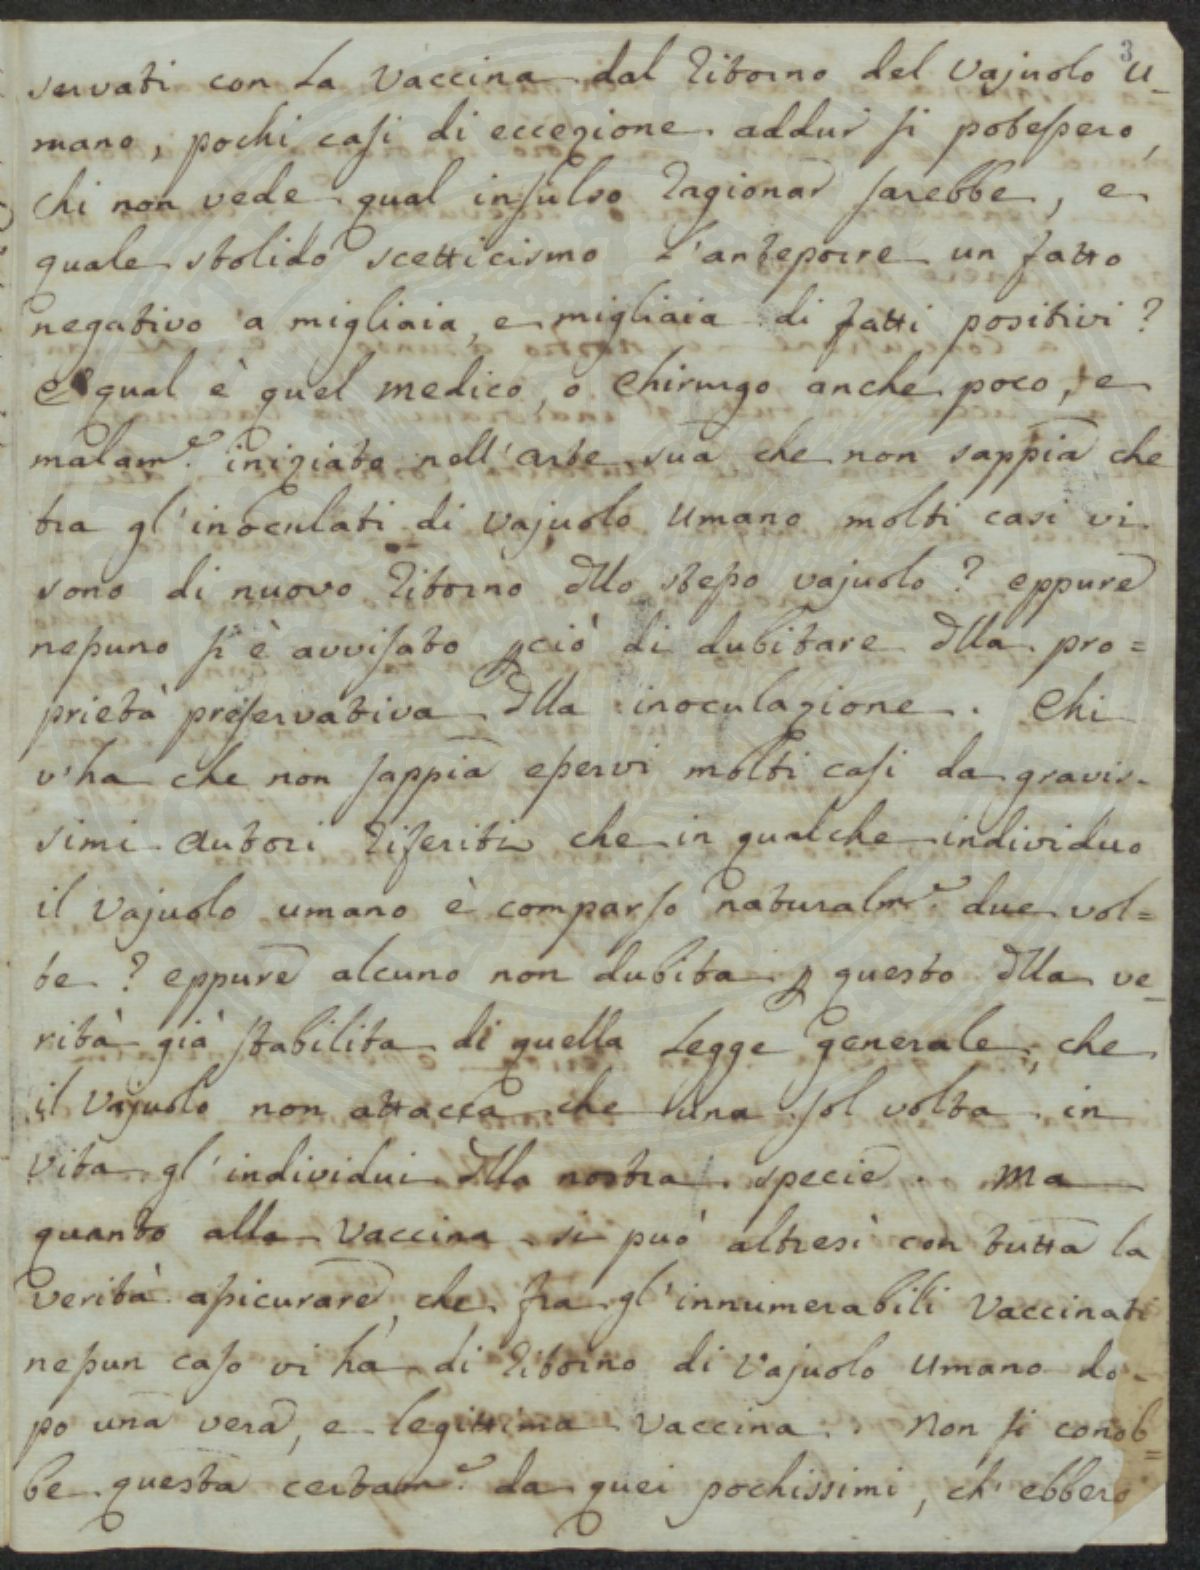 3
servati con La Vaccina dal ritorno del Vajuolo U-
mano, pochi casi di eccezione addur si potessero,
chi non vede qual insulso ragionar sarebbe, e
quale stolido scetticismo l'anteporre un fatto
negativo a migliaia, e migliaia di fatti positivi?
E qual è quel medico, o Chirurgo anche poco, e
malam.e iniziato nell'arte sua che non sappia che
tra gl'inoculati di Vajuolo Umano molti casi vi
sono di nuovo ritorno dllo stesso vajuolo? eppure
nessuno si è avvisato pciò di dubitare dlla pro=
prietà preservativa dlla inoculazione. Chi
v'ha che non sappia esservi molti casi da gravis-
simi autori riferiti che in qualche individuo
il Vajuolo umano è comparso naturalm.e due vol=
te? eppure alcuno non dubita p questo dlla ve-
rità già stabilita di quella Legge generale, che
il Vajuolo non attacca che una sol volta in
vita gl'individui dlla nostra specie. Ma
quanto alla Vaccina si può altresì con tutta la
verità assicurare, che fra gl'innumerabili Vaccinati
nessun caso vi ha di ritorno di Vajuolo Umano do-
po una vera, e legittima Vaccina. Non si conob=
be questa certam.e da quei pochissimi, ch'ebbero